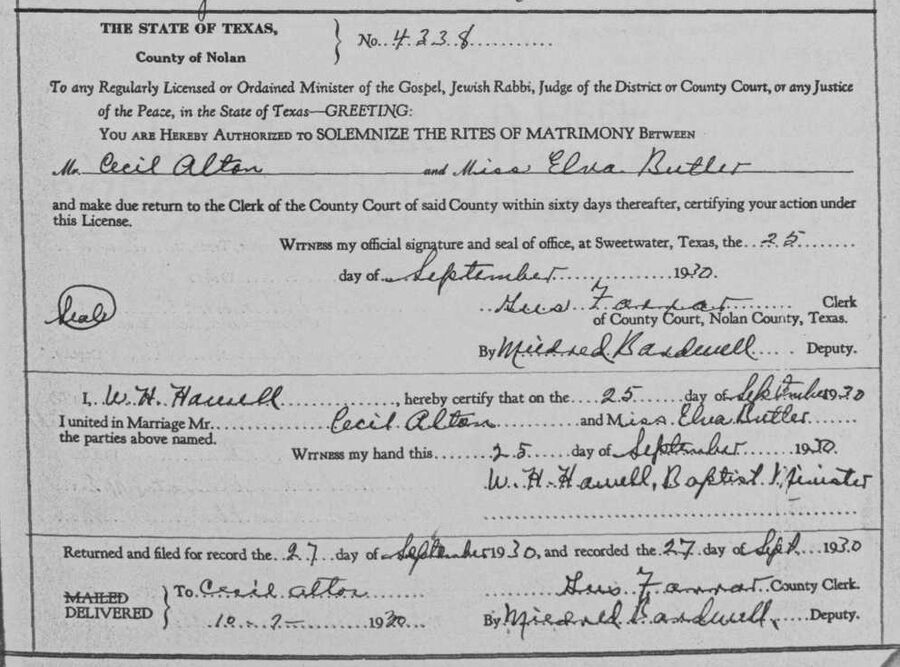 THE STATE OF TEXAS,
County of Nolan
No. 4238
To any Regularly Licensed or Ordained Minister of the Gospel, Jewish Rabbi, Judge of the District or County Court, or any Justice
of the Peace, in the State of Texas—GREETING:
YOU ARE HEREBY AUTHORIZED TO SOLEMNIZE THE RITES OF MATRIMONY BETWEEN
Mr. Cecil Alton and Miss Elva Butler
and make due return to the Clerk of the County Court of said County within sixty days thereafter, certifying your action under
this License.
WITNESS my official signature and seal of office, at Sweetwater, Texas, the 25
day of September 1930.
Gus Farrar Clerk
(Seal)
of County Court, Nolan County, Texas.
By Mildred Bardwell Deputy.
I, W. H. , hereby certify that on the 25 day of September 1930
I united in Marriage Mr. Cecil Alton and Miss Elva Butler
the parties above named.
WITNESS my hand this 25 day of September 1930.
W. H. , Baptist Minister
Returned and filed for record the 27 day of September 1930, and recorded the 27 day of Sept. 1930
MAILED
DELIVERED
To Cecil Alton Gus Farrar County Clerk.
10-2- 1930 By Mildred Bardwell, Deputy.